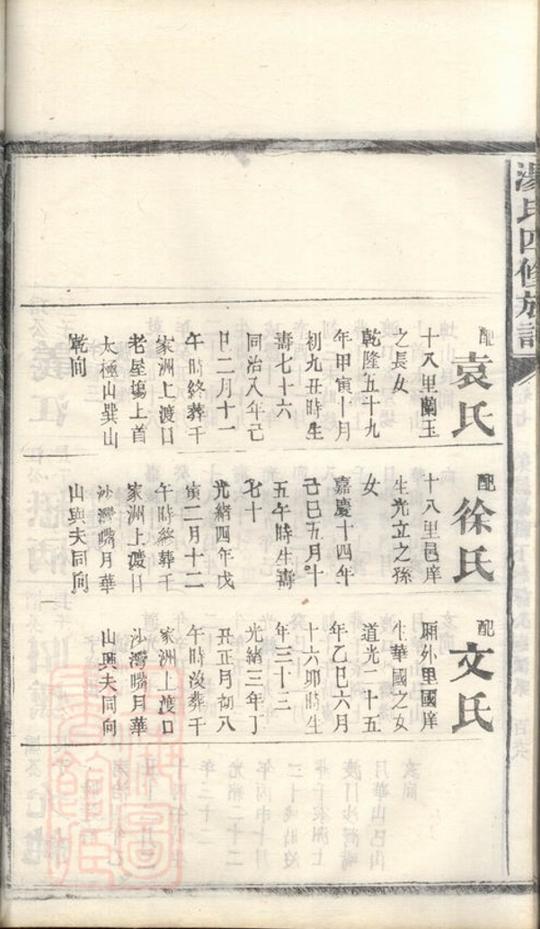 湯氏四修族譜
配
袁氏
十八里蘭玉
之長女
乾隆五十九
年甲寅十月
初九丑時生
壽七十六
同治八年己
巳二月十一
午時終葬干
家洲上渡口
老屋塲上首
太極山巽山
乾向
配
徐氏
十八里邑庠
生光立之孫
女
嘉慶十四年
己巳五月十
五午時生壽
七十
光緒四年戊
寅二月十二
午時終葬干
家洲上渡口
沙灣嘴月華
山與夫同向
配
文氏
厢外里國庠
生華國之女
道光二十五
年乙巳六月
十六卯時生
年三十三
光緒三年丁
丑正月初八
午時沒葬干
家洲上渡口
沙灣嘴月華
山與夫同向